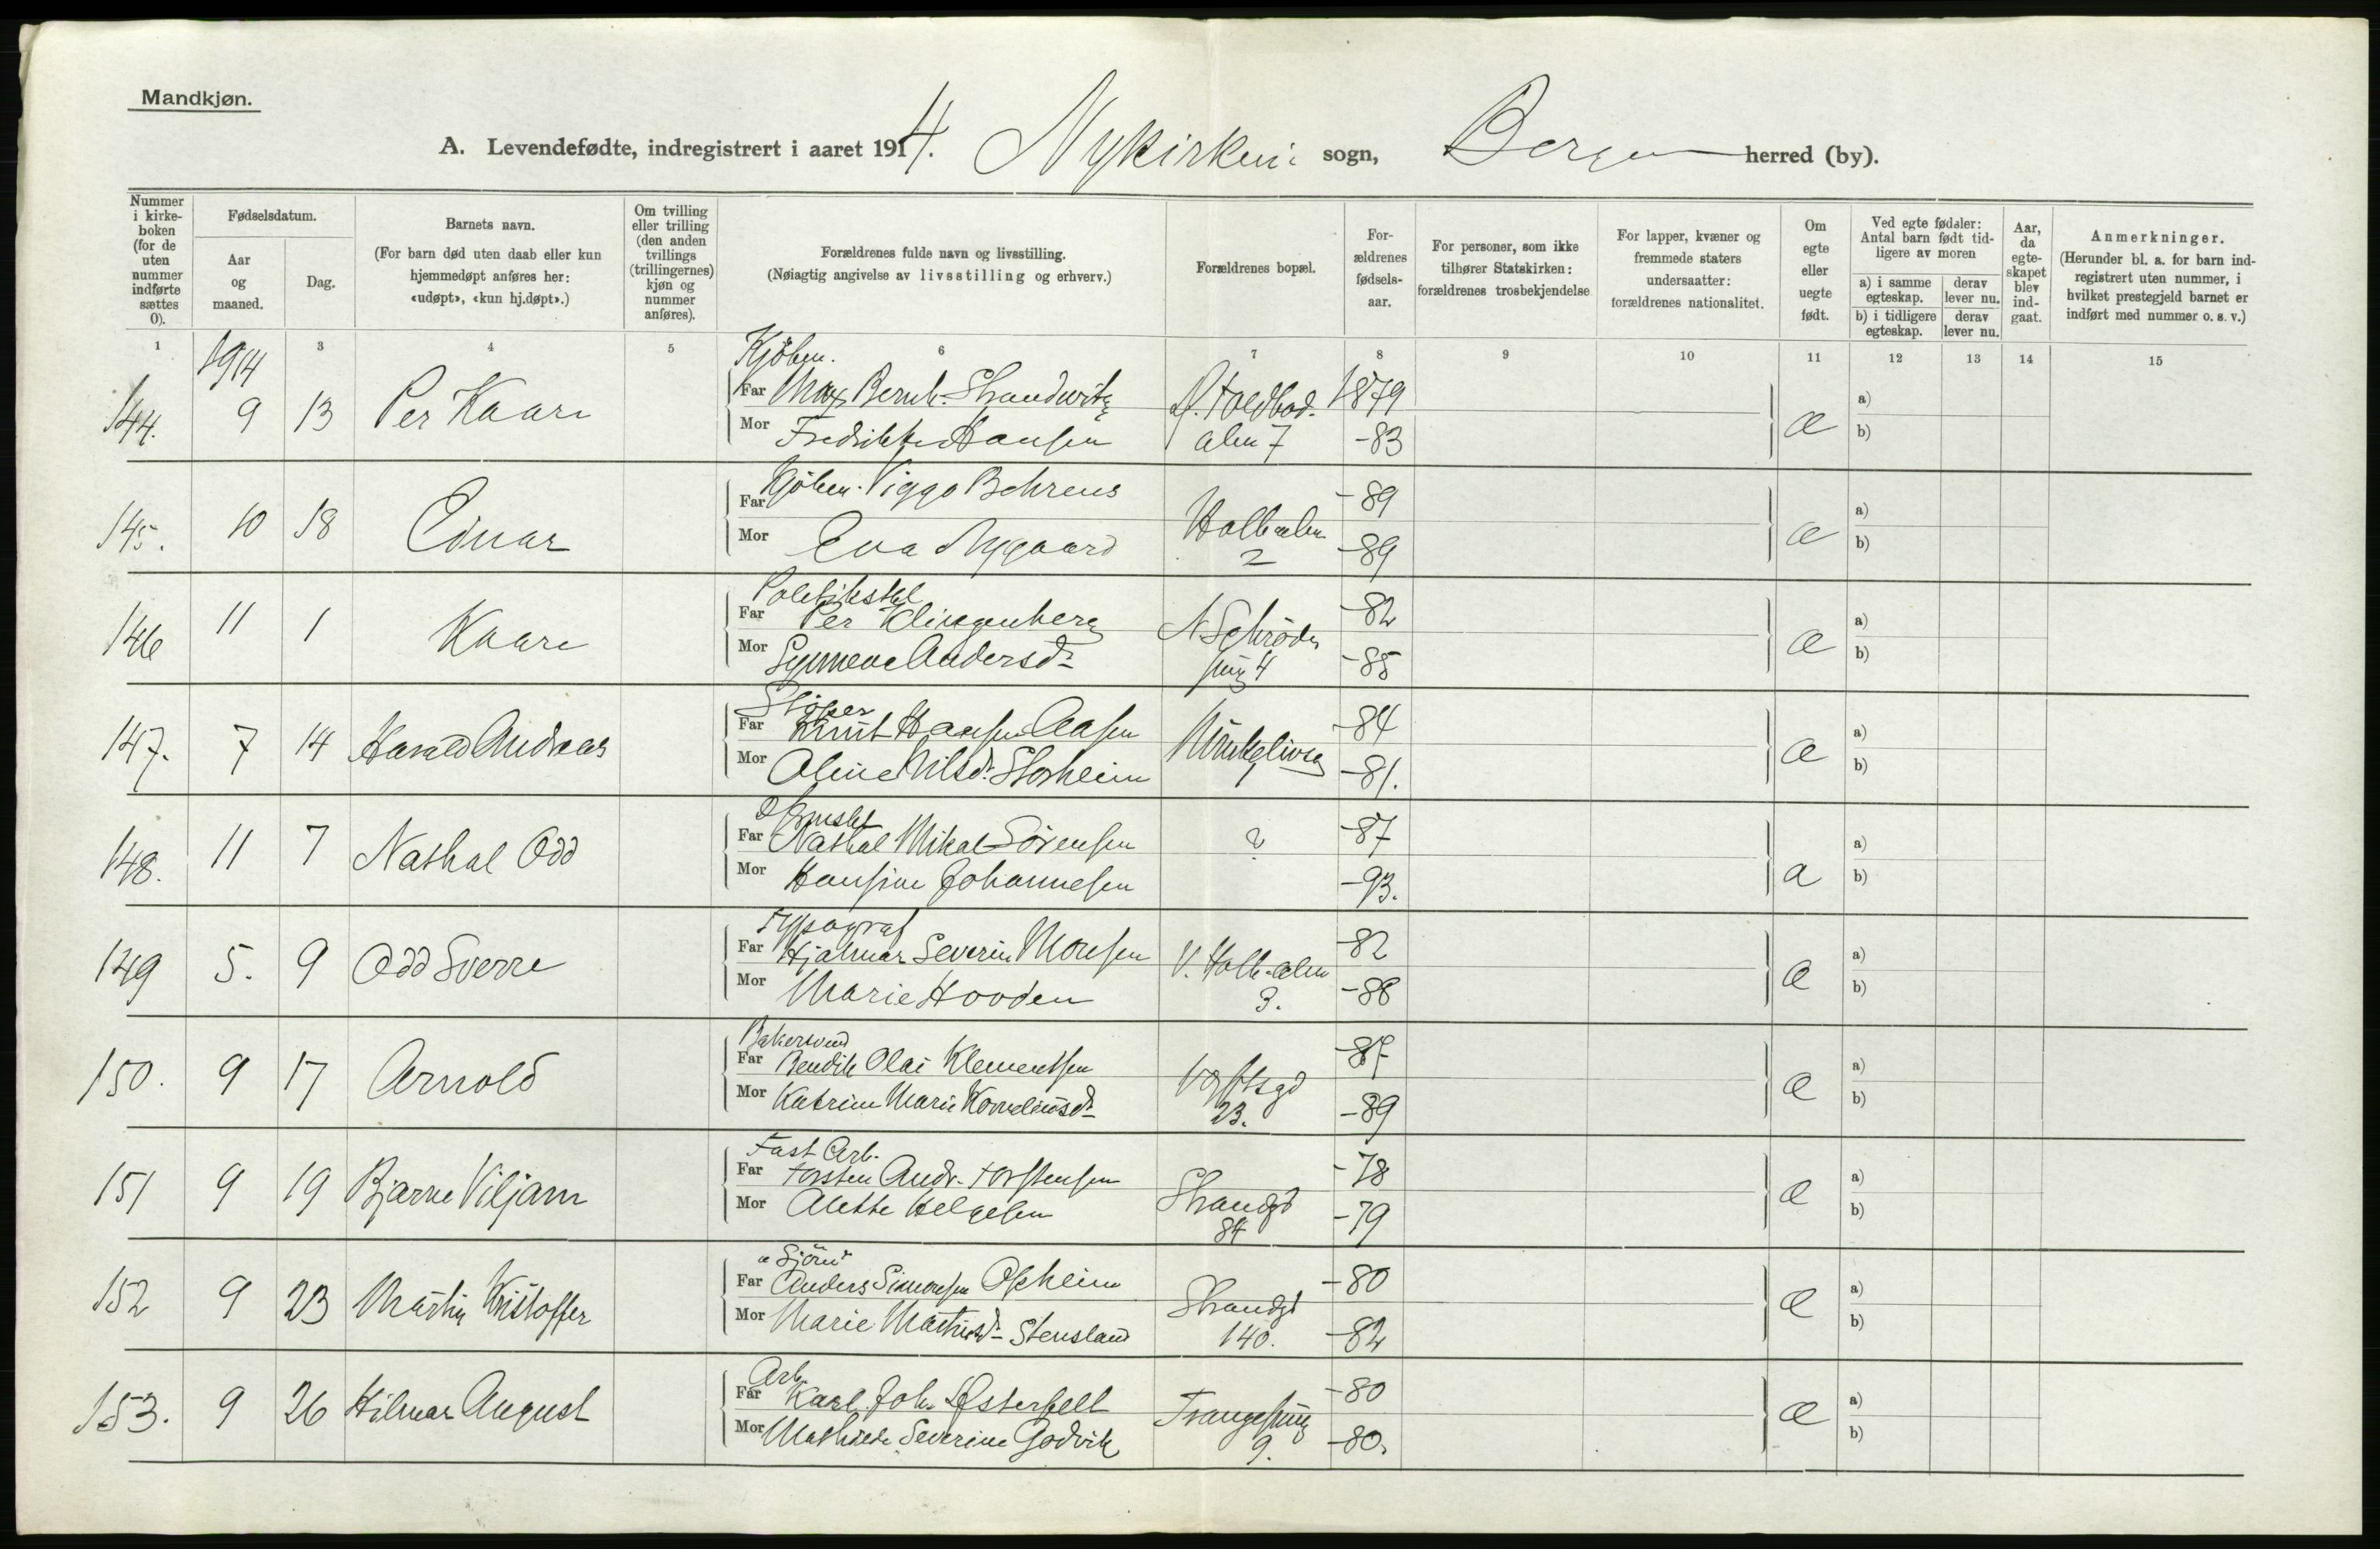 Mandkjøn.
A. Levendefødte, indregistrert i aaret 1914. Nykirken sogn, Bergen herred (by).
Nummer i kirkeboken (for de uten nummer indførte sættes 0).
Fødselsdatum.
Aar og maaned.
Dag.
Barnets navn.
(For barn død uten daab eller kun hjemmedøpt anføres her: «udøpt», «kun hj.døpt».)
Om tvilling eller trilling (den anden tvillings (trillingernes) kjøn og nummer anføres).
Forældrenes fulde navn og livsstilling.
(Nøiagtig angivelse av livsstilling og erhverv.)
Forældrenes bopæl.
Forældrenes fødselsaar.
For personer, som ikke tilhører Statskirken: forældrenes trosbekjendelse
For lapper, kvæner og fremmede staters undersaatter: forældrenes nationalitet.
Om egte eller uegte født.
Ved egte fødsler: Antal barn født tidligere av moren
a) i samme egteskap. derav lever nu.
b) i tidligere egteskap. derav lever nu.
Aar, da egteskapet blev indgaat.
Anmerkninger.
(Herunder bl. a. for barn indregistrert uten nummer, i hvilket prestegjeld barnet er indført med nummer o. s. v.)
1 3 4 5 6 7 8 9 10 11 12 13 14 15
1914 Kjøbm.
144. 9 13 Per Kaare Far Max Bernh. Strandwitz 1879 a)
Mor Fredrikke Hansen alm 7 -83 b)
Kjøbm. Viggo Behrens
145. 10 18 Einar Far Holbalm -89 a)
Mor Eva Nygaard 2 -89 b)
146 11 1 Kaare Far Per Klingenberg -82 a)
Mor Synneve Andersdr smg 4 -85 b)
147. 7 14 Harald Andreas Far Knut Hansen Aasen -84 a)
Mor Oline Nilsdr. Storheim -81. b)
148. 11 7 Nathal Odd Far Nathal Mikal Sørensen ? -87 a)
Mor Hansine Johannesen -93. b)
Typograf
149 5. 9 Odd Sverre Far Hjalmar Severin Monsen V. Holb.alm -82 a)
Mor Marie Hovden 3. -88 b)
Bakersvend
150. 9 17 Arnold Far Bendik Olai Klementsen -87 a)
Mor Katrine Marie Korneliusdr 23. -89 b)
Fast Arb.
151 9 19 Bjarne Viljam Far Torsten Andr. Torstensen Strandgt -78 a)
Mor Alette Helgesen 84 -79 b)
Sjømd
152 9 23 Martin Kristoffer Far Anders Simonsen Opheim Strandgt -80 a)
Mor Marie Martinsdr Stensland 140. -82 b)
Arb.
153. 9 26 Hilmar August Far Karl Joh. Østerfelt Trangesmug -80 a)
Mor Mathilde Severine Godvik 9. -80. b)